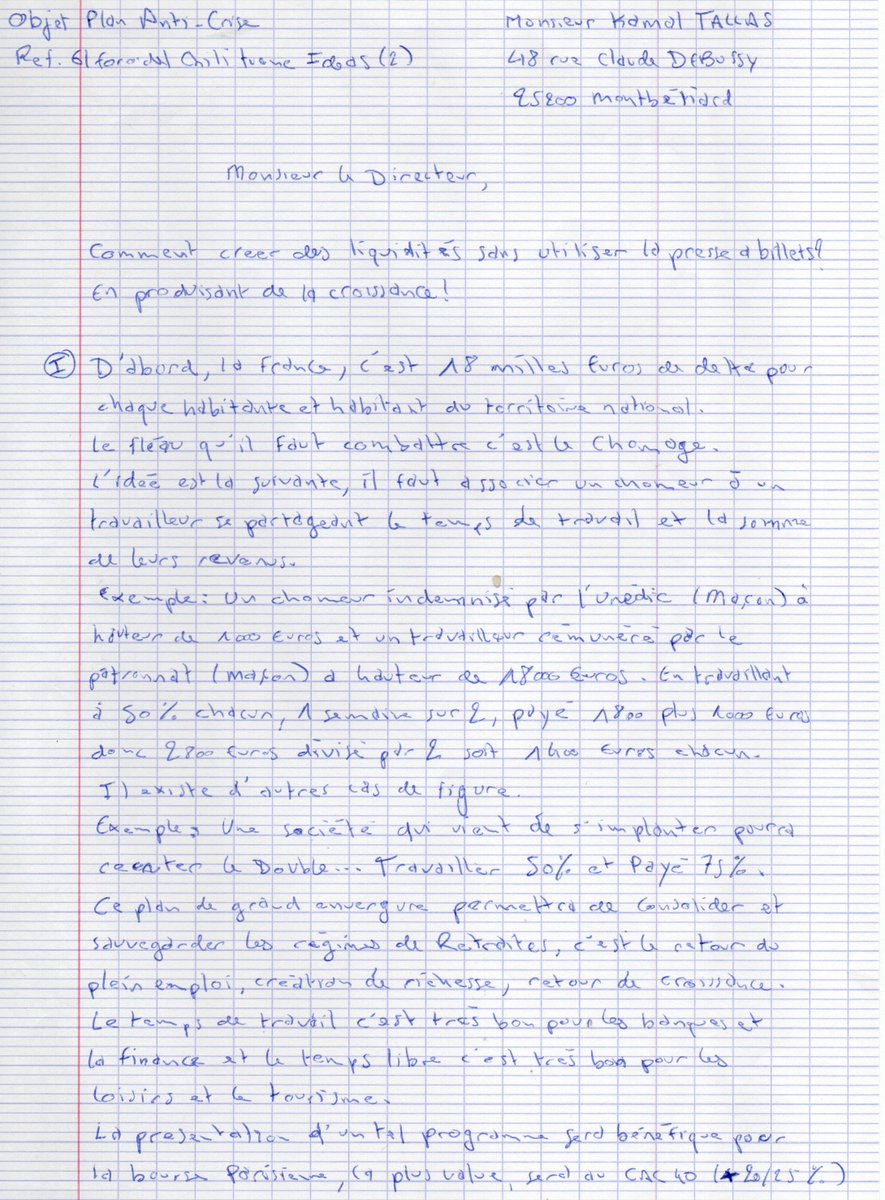 Objet Plan Anti-Crise
Monsieur Kamal TALLAS
Ref.
48 rue Claude DEBUSSY
25200 Montbéliard
Monsieur le Directeur,
Comment creer des liquidités sans utiliser la presse a billets?
En produisant de la croissance!
I D'abord, la france, c'est 18 milles Euros de dette pour
chaque habitante et habitant du territoire national.
Le fléau qu'il faut combattre c'est le Chomage.
L'idée est la suivante, il faut associer un chomeur à un
travailleur se partageant le temps de travail et la somme
de leurs revenus.
Exemple: Un chomeur indemnisé par l'Unédic (Maçon) à
hauteur de 1000 Euros et un travailleur rémunéré par le
patronnat (maçon) a hauteur de 18000 Euros. En travaillant
à 50% chacun, 1 semaine sur 2, payé 1800 plus 1000 Euros
donc 2800 Euros divisé par 2 soit 1400 Euros chacun.
Il existe d'autres cas de figure.
Exemple: Une société qui vient de s'implanter pourra
recruter le Double... Travailler 50% et Payé 75%.
Ce plan de grand envergure permettra de consolider et
sauvegarder les régimes de Retraites, c'est le retour du
plein emploi, création de richesse, retour de croissance.
Le temps de travail c'est très bon pour les banques et
la finance et le temps libre c'est très bon pour les
loisirs et le tourisme.
La presentation d'un tel programme sera bénéfique pour
la bourse Parisienne, la plus value, serai du CAC 40 (+20/25%)